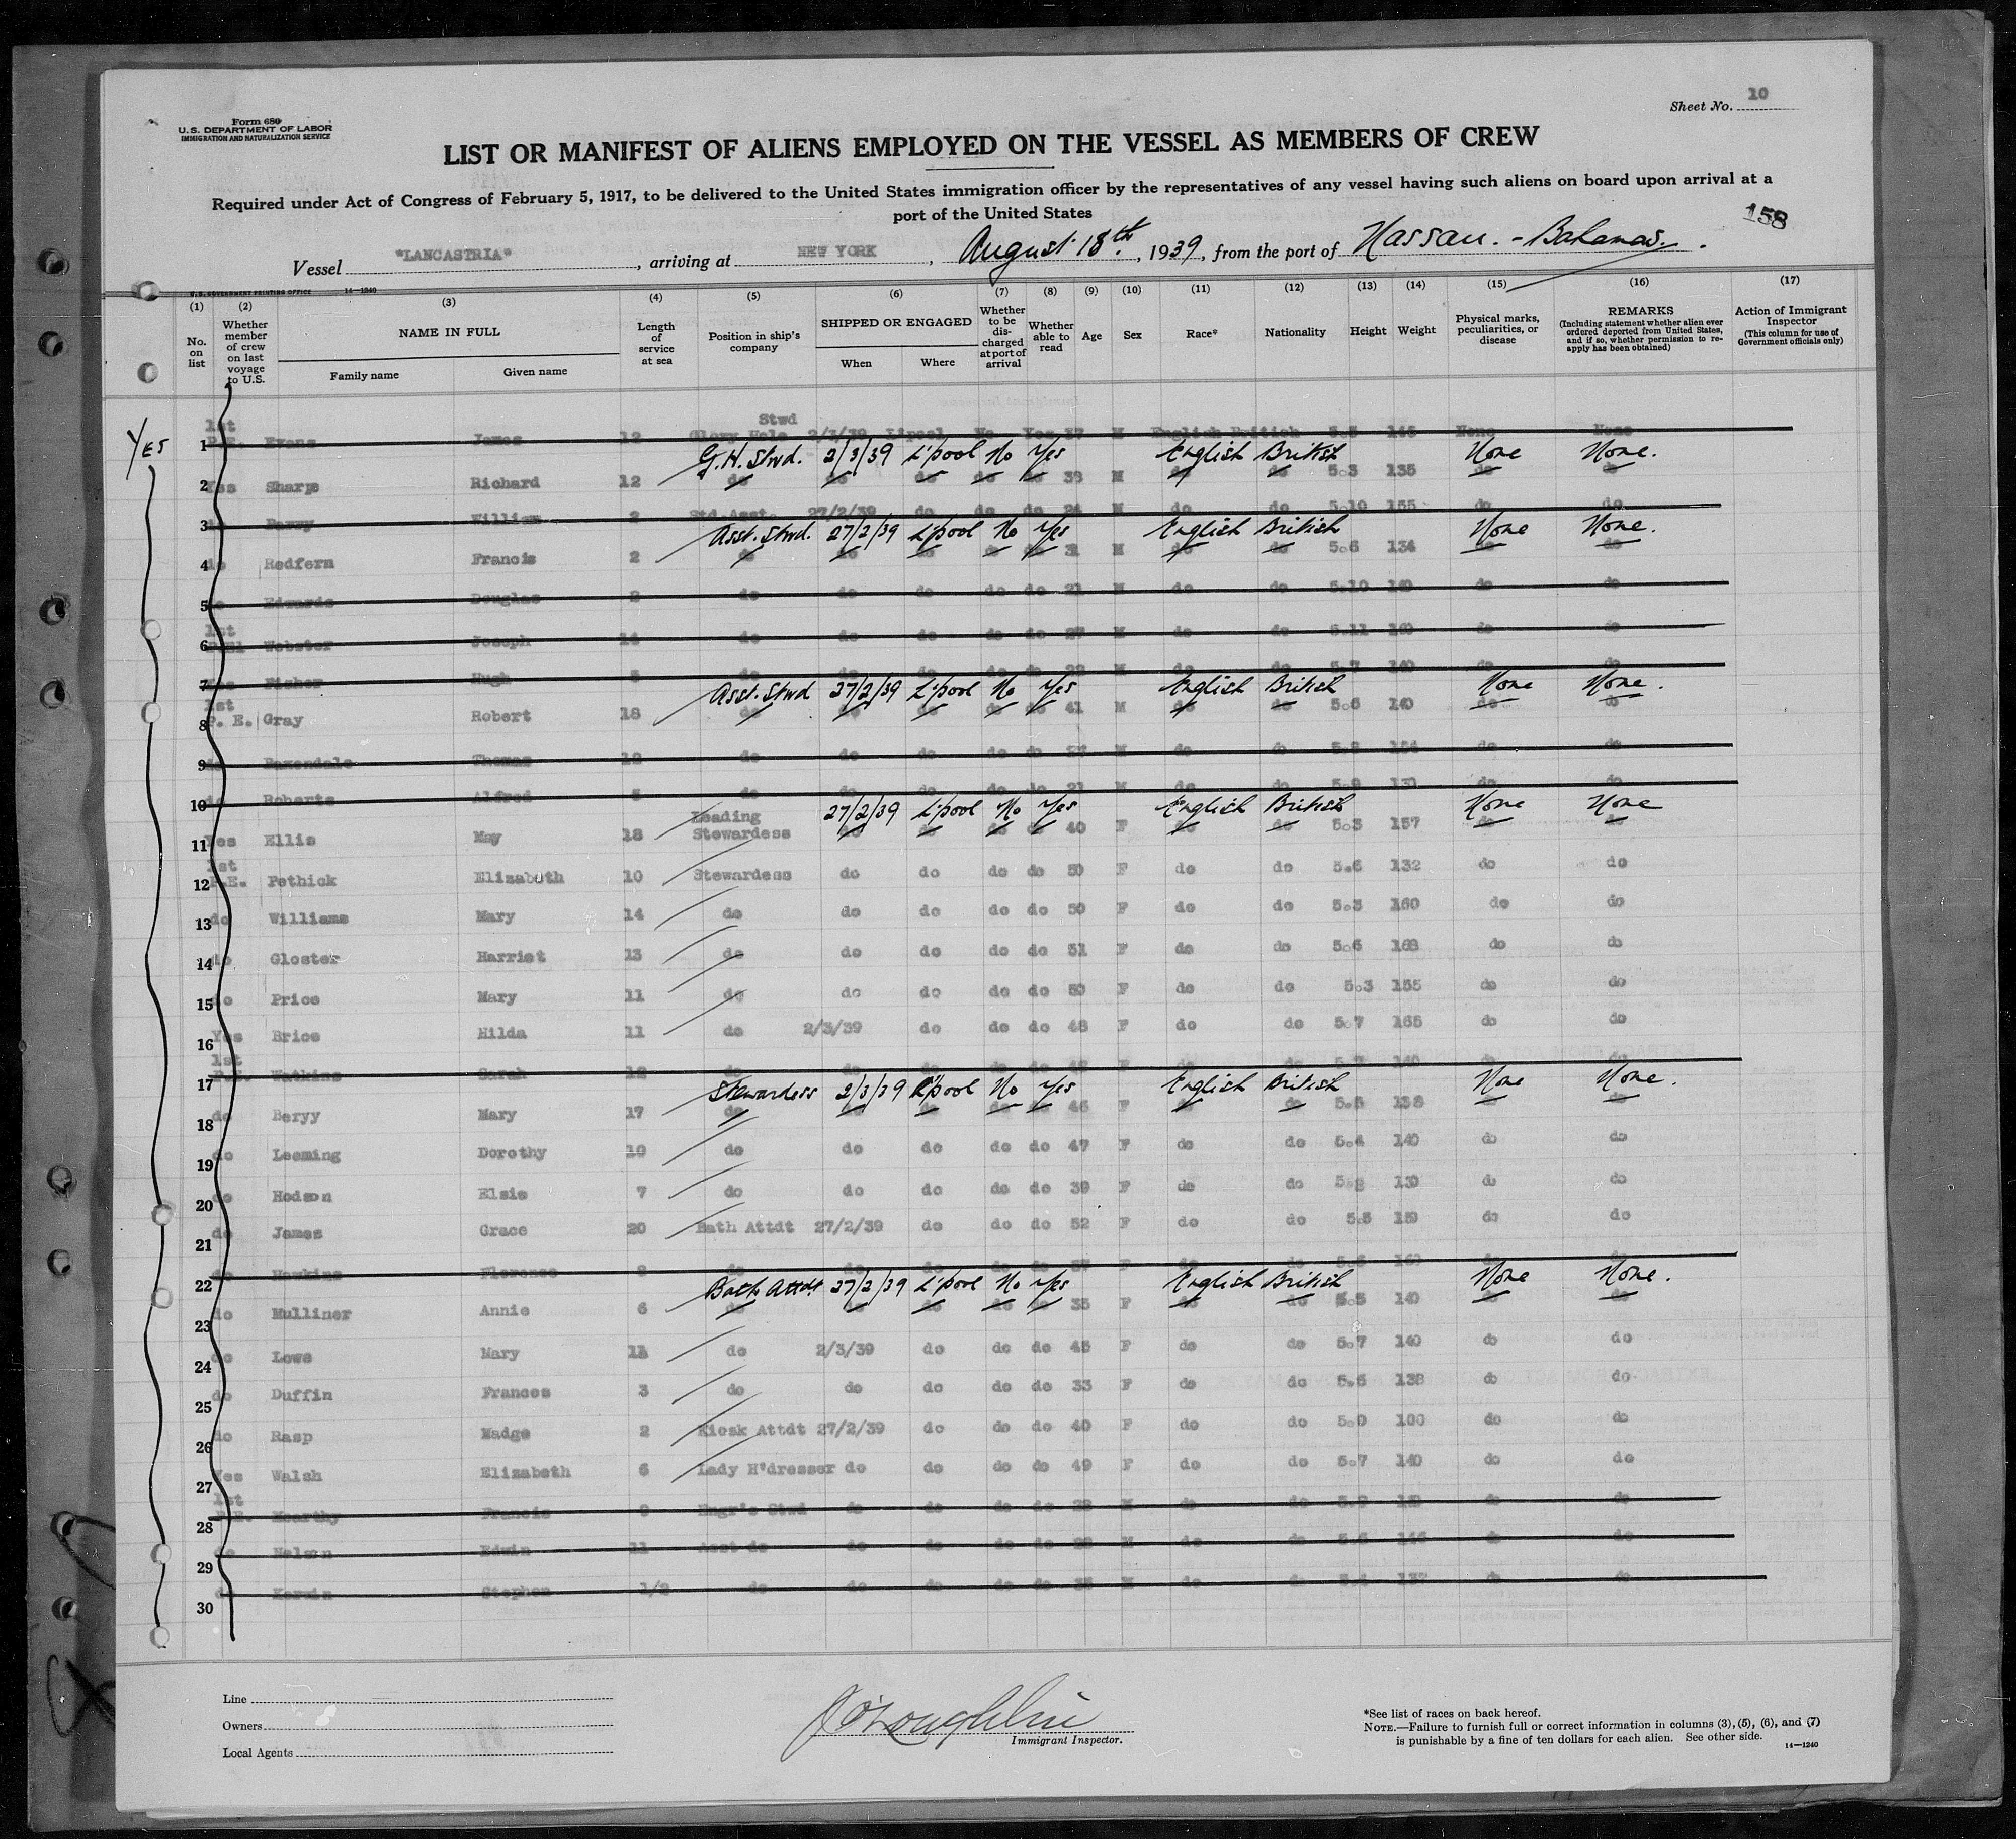 Sheet No. 10
Form 680
U.S. DEPARTMENT OF LABOR
IMMIGRATION AND NATURALIZATION SERVICE
LIST OR MANIFEST OF ALIENS EMPLOYED ON THE VESSEL AS MEMBERS OF CREW
Required under Act of Congress of February 5, 1917, to be delivered to the United States immigration officer by the representatives of any vessel having such aliens on board upon arrival at a
port of the United States
158
Vessel "LANCASTRIA", arriving at NEW YORK, August 18th, 1939, from the port of Nassau. - Bahamas.
U.S. GOVERNMENT PRINTING OFFICE 14—1240
(1) (2) (3) (4) (5) (6) (7) (8) (9) (10) (11) (12) (13) (14) (15) (16) (17)
No. on list Whether member of crew on last voyage to U.S. NAME IN FULL Family name Given name Length of service at sea Position in ship's company SHIPPED OR ENGAGED When Where Whether to be discharged at port of arrival Whether able to read Age Sex Race* Nationality Height Weight Physical marks, peculiarities, or disease REMARKS (Including statement whether alien ever ordered deported from United States, and if so, whether permission to re-apply has been obtained) Action of Immigrant Inspector (This column for use of Government officials only)
Yes
1 1st P.E. Evans James 12 Stwd Glory Hole 2/3/39 Lipool No Yes 37 M English British 5.5 145 None None
G.H. Stwd. 2/3/39 L'pool No Yes English British None None.
2 Yes Sharp Richard 12 do do do do do 38 M do do 5.3 135 do do
3 William 2 Std.Asst. 27/2/39 do do do 24 M do do 5.10 155 do do
Asst. Stwd. 27/2/39 L'pool No Yes English British None None.
4 do Redfern Francis 2 do do do do do 31 M do do 5.6 134 do do
5 Edwards Douglas 2 do do do do do 21 M do do 5.10 140 do do
6 1st Webster Joseph 14 do do do do do 27 M do do 5.11 160 do do
7 Yes Fisher Hugh 5 do do do do do M do do 5.7 140 do do
Asst. Stwd 27/2/39 L'pool No Yes English British None None.
8 1st P.E. Gray Robert 18 do do do do do 41 M do do 5.6 140 do do
9 do Baxendale Thomas 12 do do do do do M do do 154 do do
10 do Roberts Alfred 5 do do do do do 21 M do do 5.9 130 do do
27/2/39 L'pool No Yes English British None None
11 Yes Ellis May 18 Leading Stewardess do do do do 40 F do do 5.3 157 do do
12 1st P.E. Pethick Elizabeth 10 Stewardess do do do do 50 F do do 5.6 132 do do
13 do Williams Mary 14 do do do do do 50 F do do 5.3 160 do do
14 do Gloster Harriet 13 do do do do do 51 F do do 5.6 168 do do
15 do Price Mary 11 do do do do do 50 F do do 5.3 155 do do
16 Yes Brice Hilda 11 do 2/3/39 do do do 48 F do do 5.7 165 do do
17 1st P.E. Watkins Sarah 12 do do do do do F do do 140 do do
Stewardess 2/3/39 L'pool No Yes English British None None.
18 do Beryy Mary 17 do do do do do 46 F do do 5.5 138 do do
19 do Leeming Dorothy 10 do do do do do 47 F do do 5.4 140 do do
20 do Hodson Elsie 7 do do do do do 39 F do do 130 do do
21 do James Grace 20 Bath Attdt 27/2/39 do do do 52 F do do 5.5 159 do do
22 do Hawkins Florence 8 do do do do do 37 F do do do do
Bath Attdt 27/2/39 L'pool No Yes English British None None.
23 do Mulliner Annie 6 do do do do do 35 F do do 5.5 140 do do
24 do Lowe Mary do 2/3/39 do do do 45 F do do 5.7 140 do do
25 do Duffin Frances 3 do do do do do 33 F do do 5.5 138 do do
26 do Rasp Madge 2 Kiosk Attdt 27/2/39 do do do 40 F do do 5.0 100 do do
27 Yes Walsh Elizabeth 6 Lady H'dresser do do do do 49 F do do 5.7 140 do do
28 1st P.E. Mcarthy Francis Engr's Stwd do do do do M do do do do
29 do Nelson Edwin 11 Asst do do do do do M do do 5.6 146 do do
30 do Kerwin Stephen 1/2 do do do do do M do do do do
Line
Owners
Local Agents
J O'Loughlin
Immigrant Inspector.
*See list of races on back hereof.
NOTE.—Failure to furnish full or correct information in columns (3), (5), (6), and (7)
is punishable by a fine of ten dollars for each alien. See other side.
14—1240